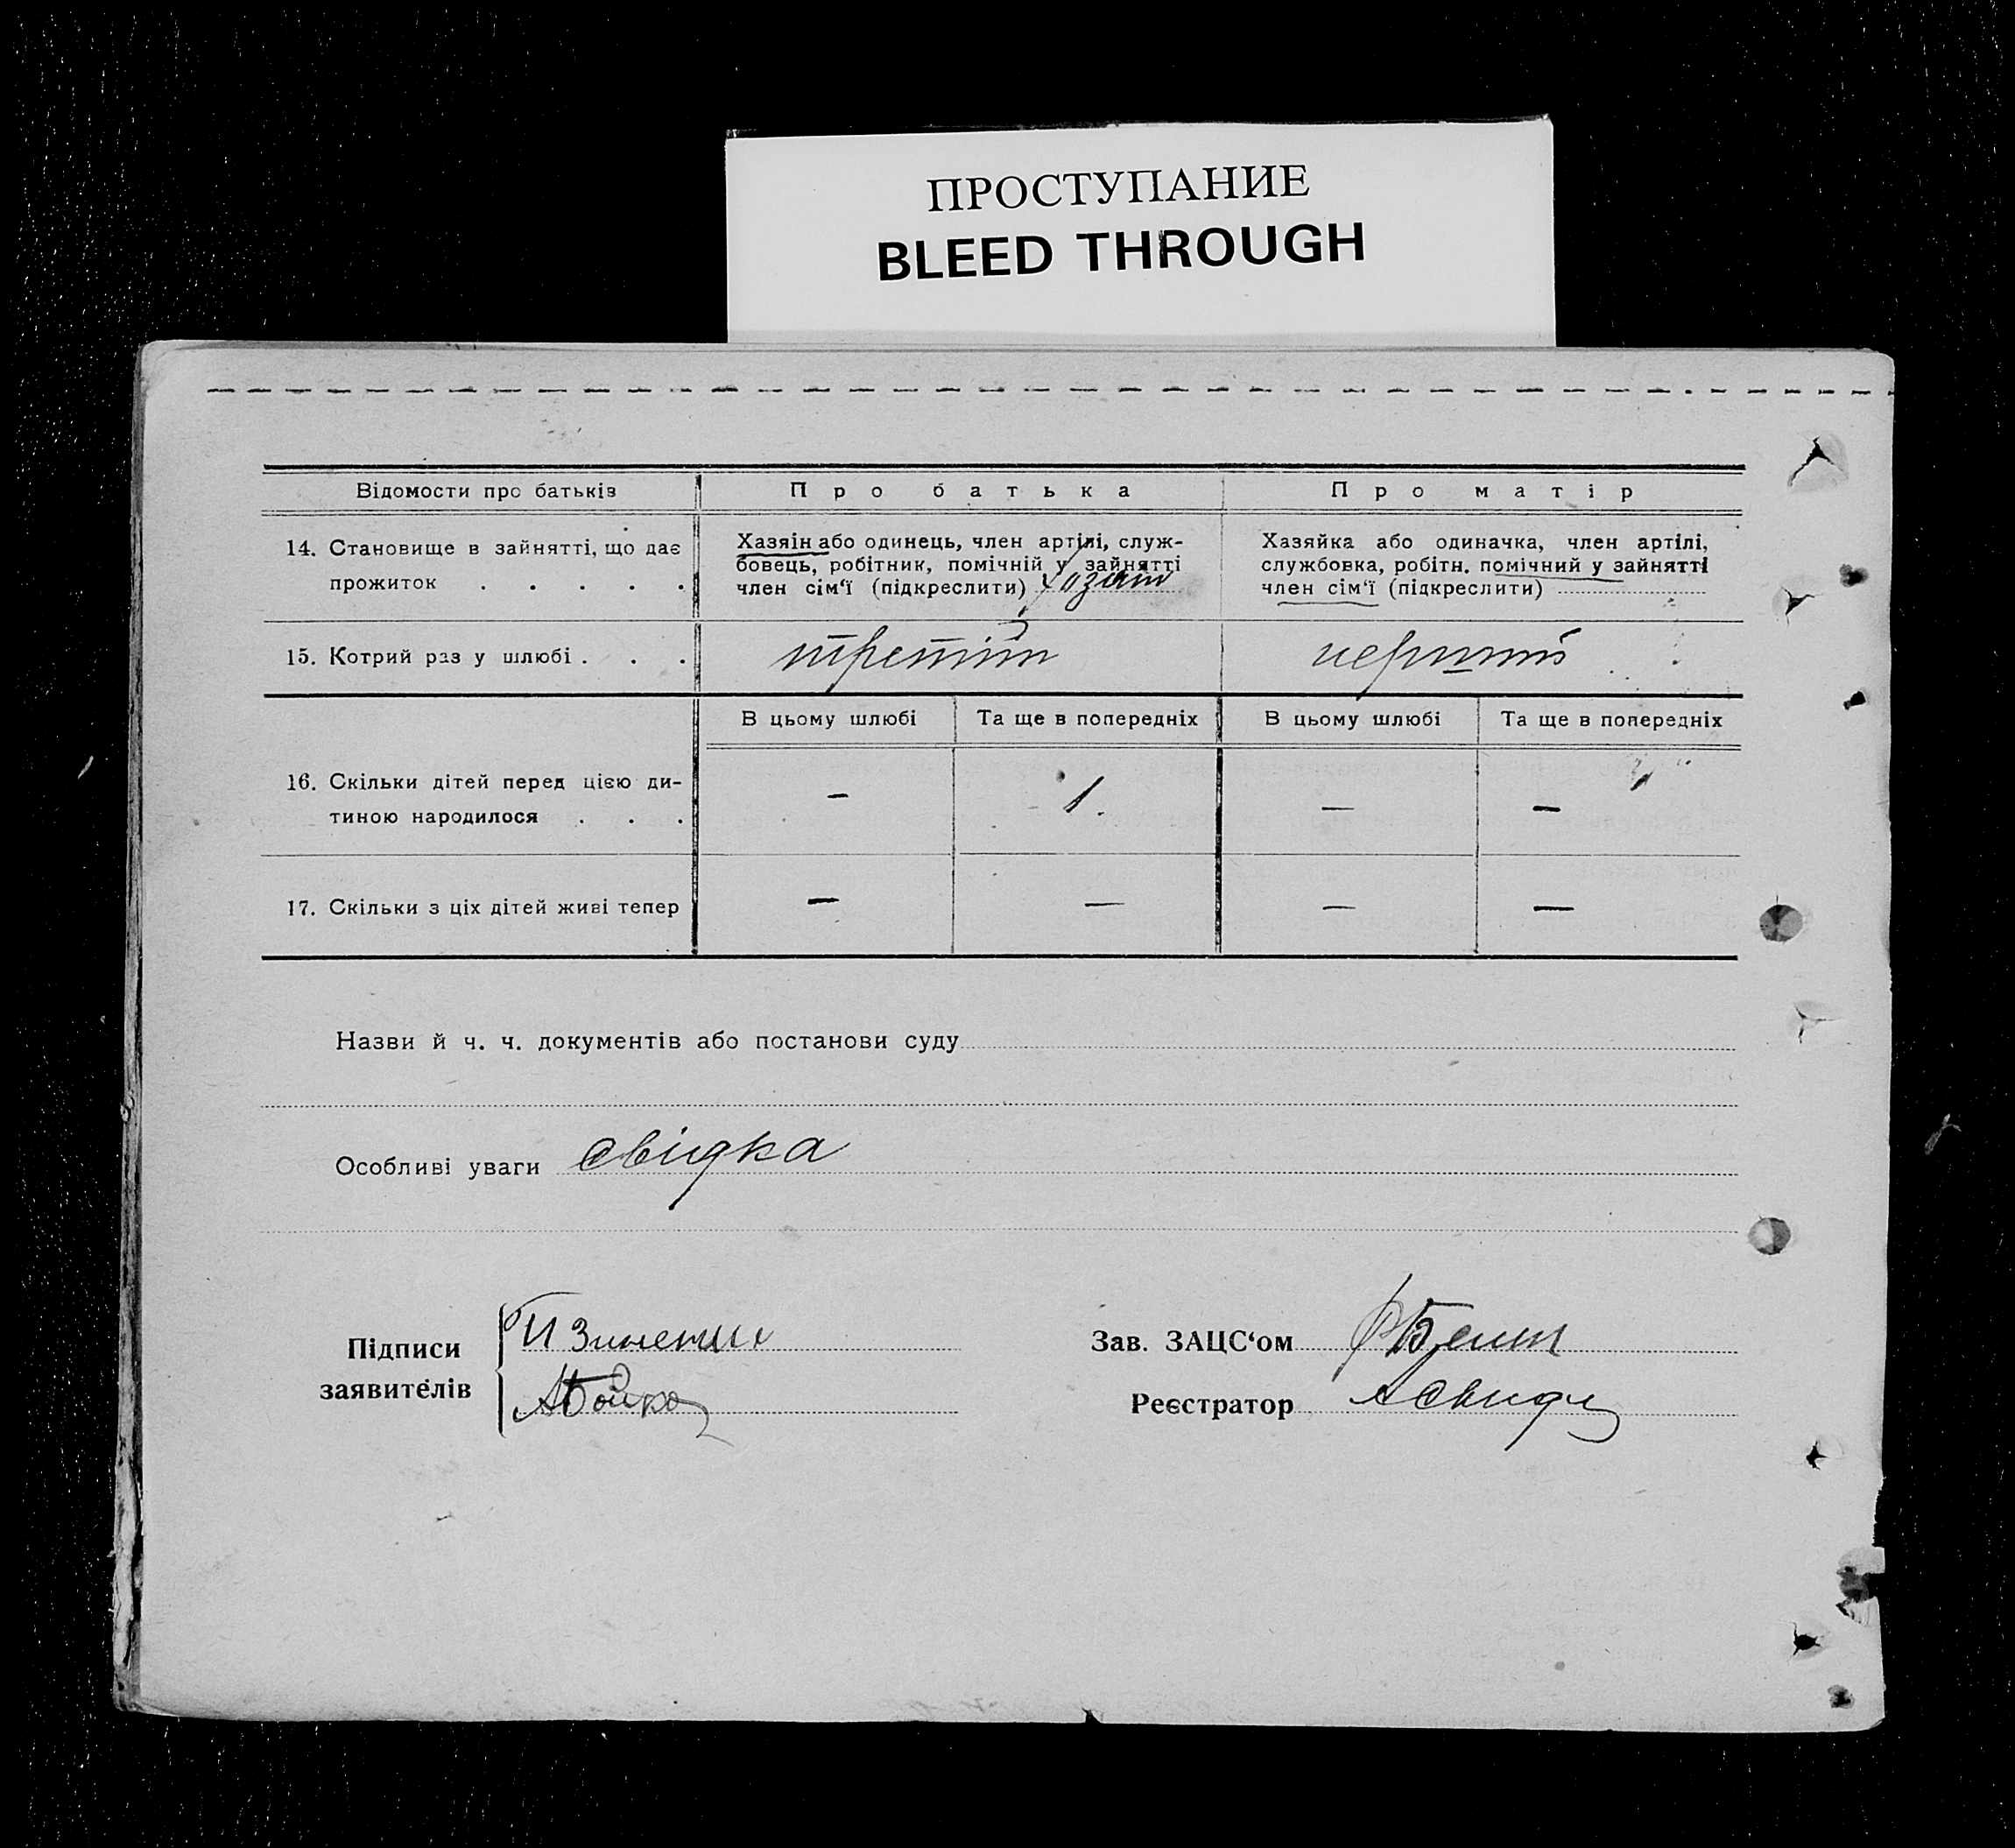 ПРОСТУПАНИЕ
BLEED THROUGH
Відомости про батьків
Про батька
Про матір
14. Становище в зайнятті, що дає
прожиток . . . . .
Хазяін або одинець, член артілі, служ-
бовець, робітник, помічній у зайнятті
член сім'ї (підкреслити) хозяін
Хазяйка або одиначка, член артілі,
службовка, робітн. помічний у зайнятті
член сім'ї (підкреслити)
15. Котрий раз у шлюбі . . .
третій
перший
В цьому шлюбі
Та ще в попередніх
В цьому шлюбі
Та ще в попередніх
16. Скільки дітей перед цією ди-
тиною народилося . . .
— 1. — —
17. Скільки з ціх дітей живі тепер
— — — —
Назви й ч. ч. документів або постанови суду
Особливі уваги свідка
Підписи
заявителів
АБойко
Зав. ЗАЦС'ом
Реєстратор